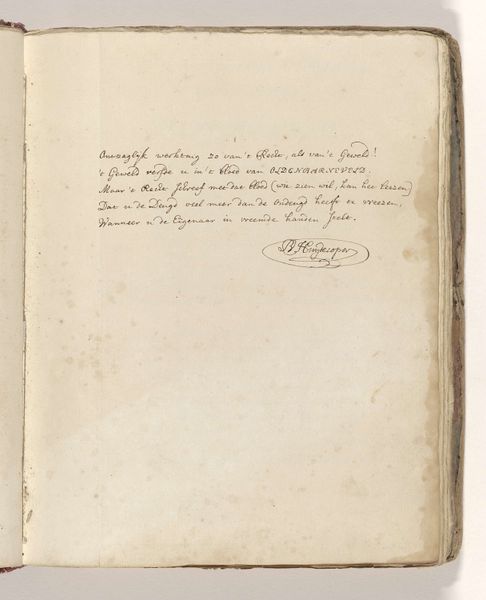 Ontzaglyk werktuig zo van 't Recht, als van 't Geweld!
't Geweld verfde u in 't bloed van OLDENBARNEVELD:
Maar 't Recht schreef met dat bloed (wie zien wil, kan het leezen)
Dat u de Deugd veel meer dan de Ondeugd heeft te vreezen,
Wanneer u de Eigenaar in vreemde handen stelt.
B. Huydecoper